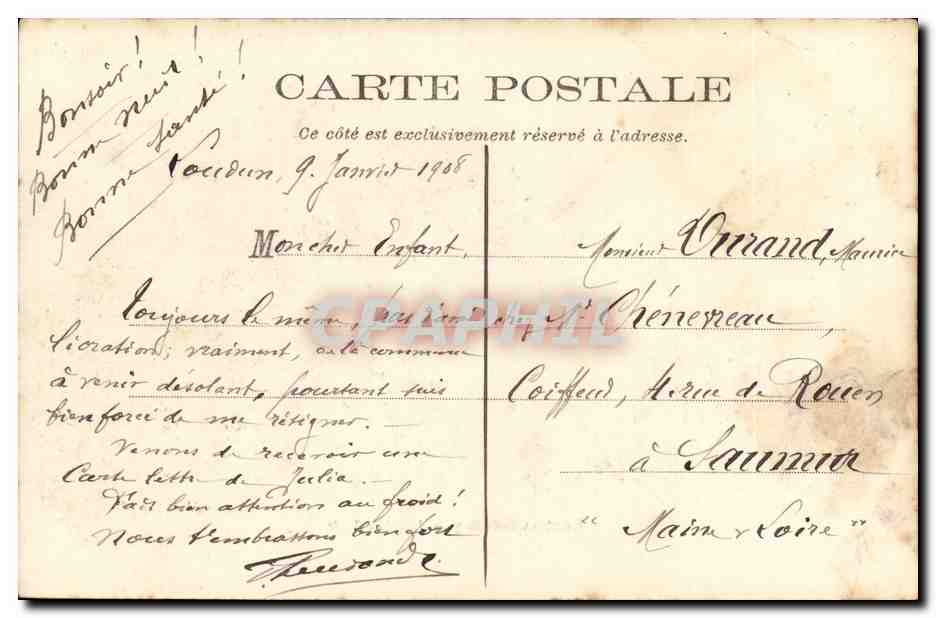 Bonsoir !
Bonne nuit !
Bonne Santé !
CARTE POSTALE
Ce côté est exclusivement réservé à l'adresse.
Loudun, 9. Janvier 1908
Mon cher Enfant,
Toujours le même, pas d'amé-
lioration; vraiment, ça commence
à venir désolant, pourtant suis
bien forcé de me résigner. —
Venons de recevoir une
Carte lettre de Julia. —
Fais bien attention au froid !
Nous t'embrassons bien fort
Monsieur Durand, Maurice
chez Mr Chénevreau,
Coiffeur, 4 rue de Rouen
à Saumur
" Maine & Loire "
CPAPHIL